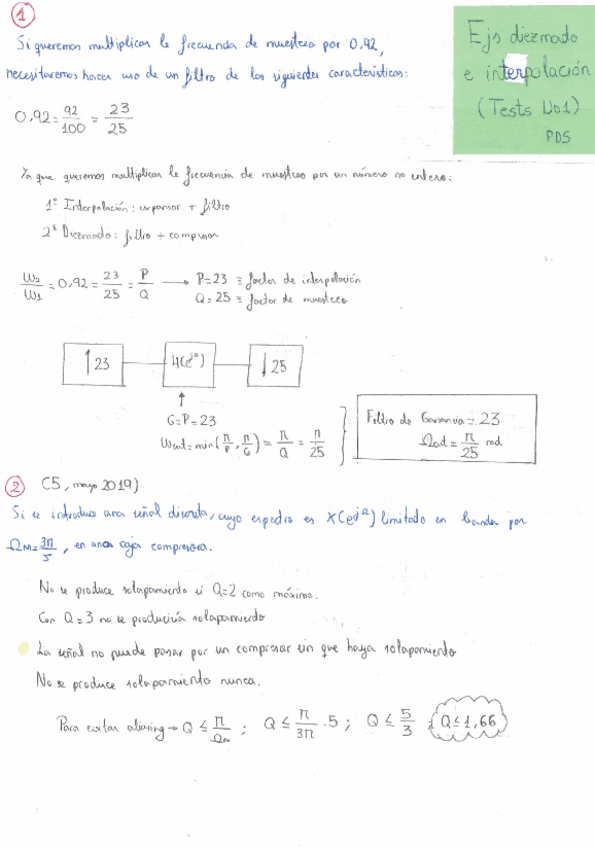 1
Si queremos multiplicar la frecuencia de muestreo por 0,92,
necesitaremos hacer uso de un filtro de las siguientes características:
Ejs diezmado
e interpolación
(Tests Ud1)
PDS
0,92 = 92/100 = 23/25
Ya que queremos multiplicar la frecuencia de muestreo por un número no entero:
1º Interpolación: expansor + filtro
2º Diezmado: filtro + compresor
W2/W1 = 0,92 = 23/25 = P/Q → P=23 ≡ factor de interpolación
Q=25 ≡ factor de muestreo
↑23
H(e^jΩ)
↓25
G=P=23
Ωcut = min(π/P, π/G) = π/Q = π/25
Filtro de Ganancia = 23
Ωcut = π/25 rad.
2 (5, mayo 2019)
Si se introduce una señal discreta, cuyo espectro es X(e^jΩ) limitado en banda por
ΩM = 3π/5, en una caja compresora.
No se produce solapamiento si Q=2 como máximo.
Con Q=3 no se produciría solapamiento
La señal no puede pasar por un compresor sin que haya solapamiento
No se produce solapamiento nunca.
Para evitar aliasing → Q ≤ π/Ωm ; Q ≤ π/3π · 5 ; Q ≤ 5/3 ; Q ≤ 1,66